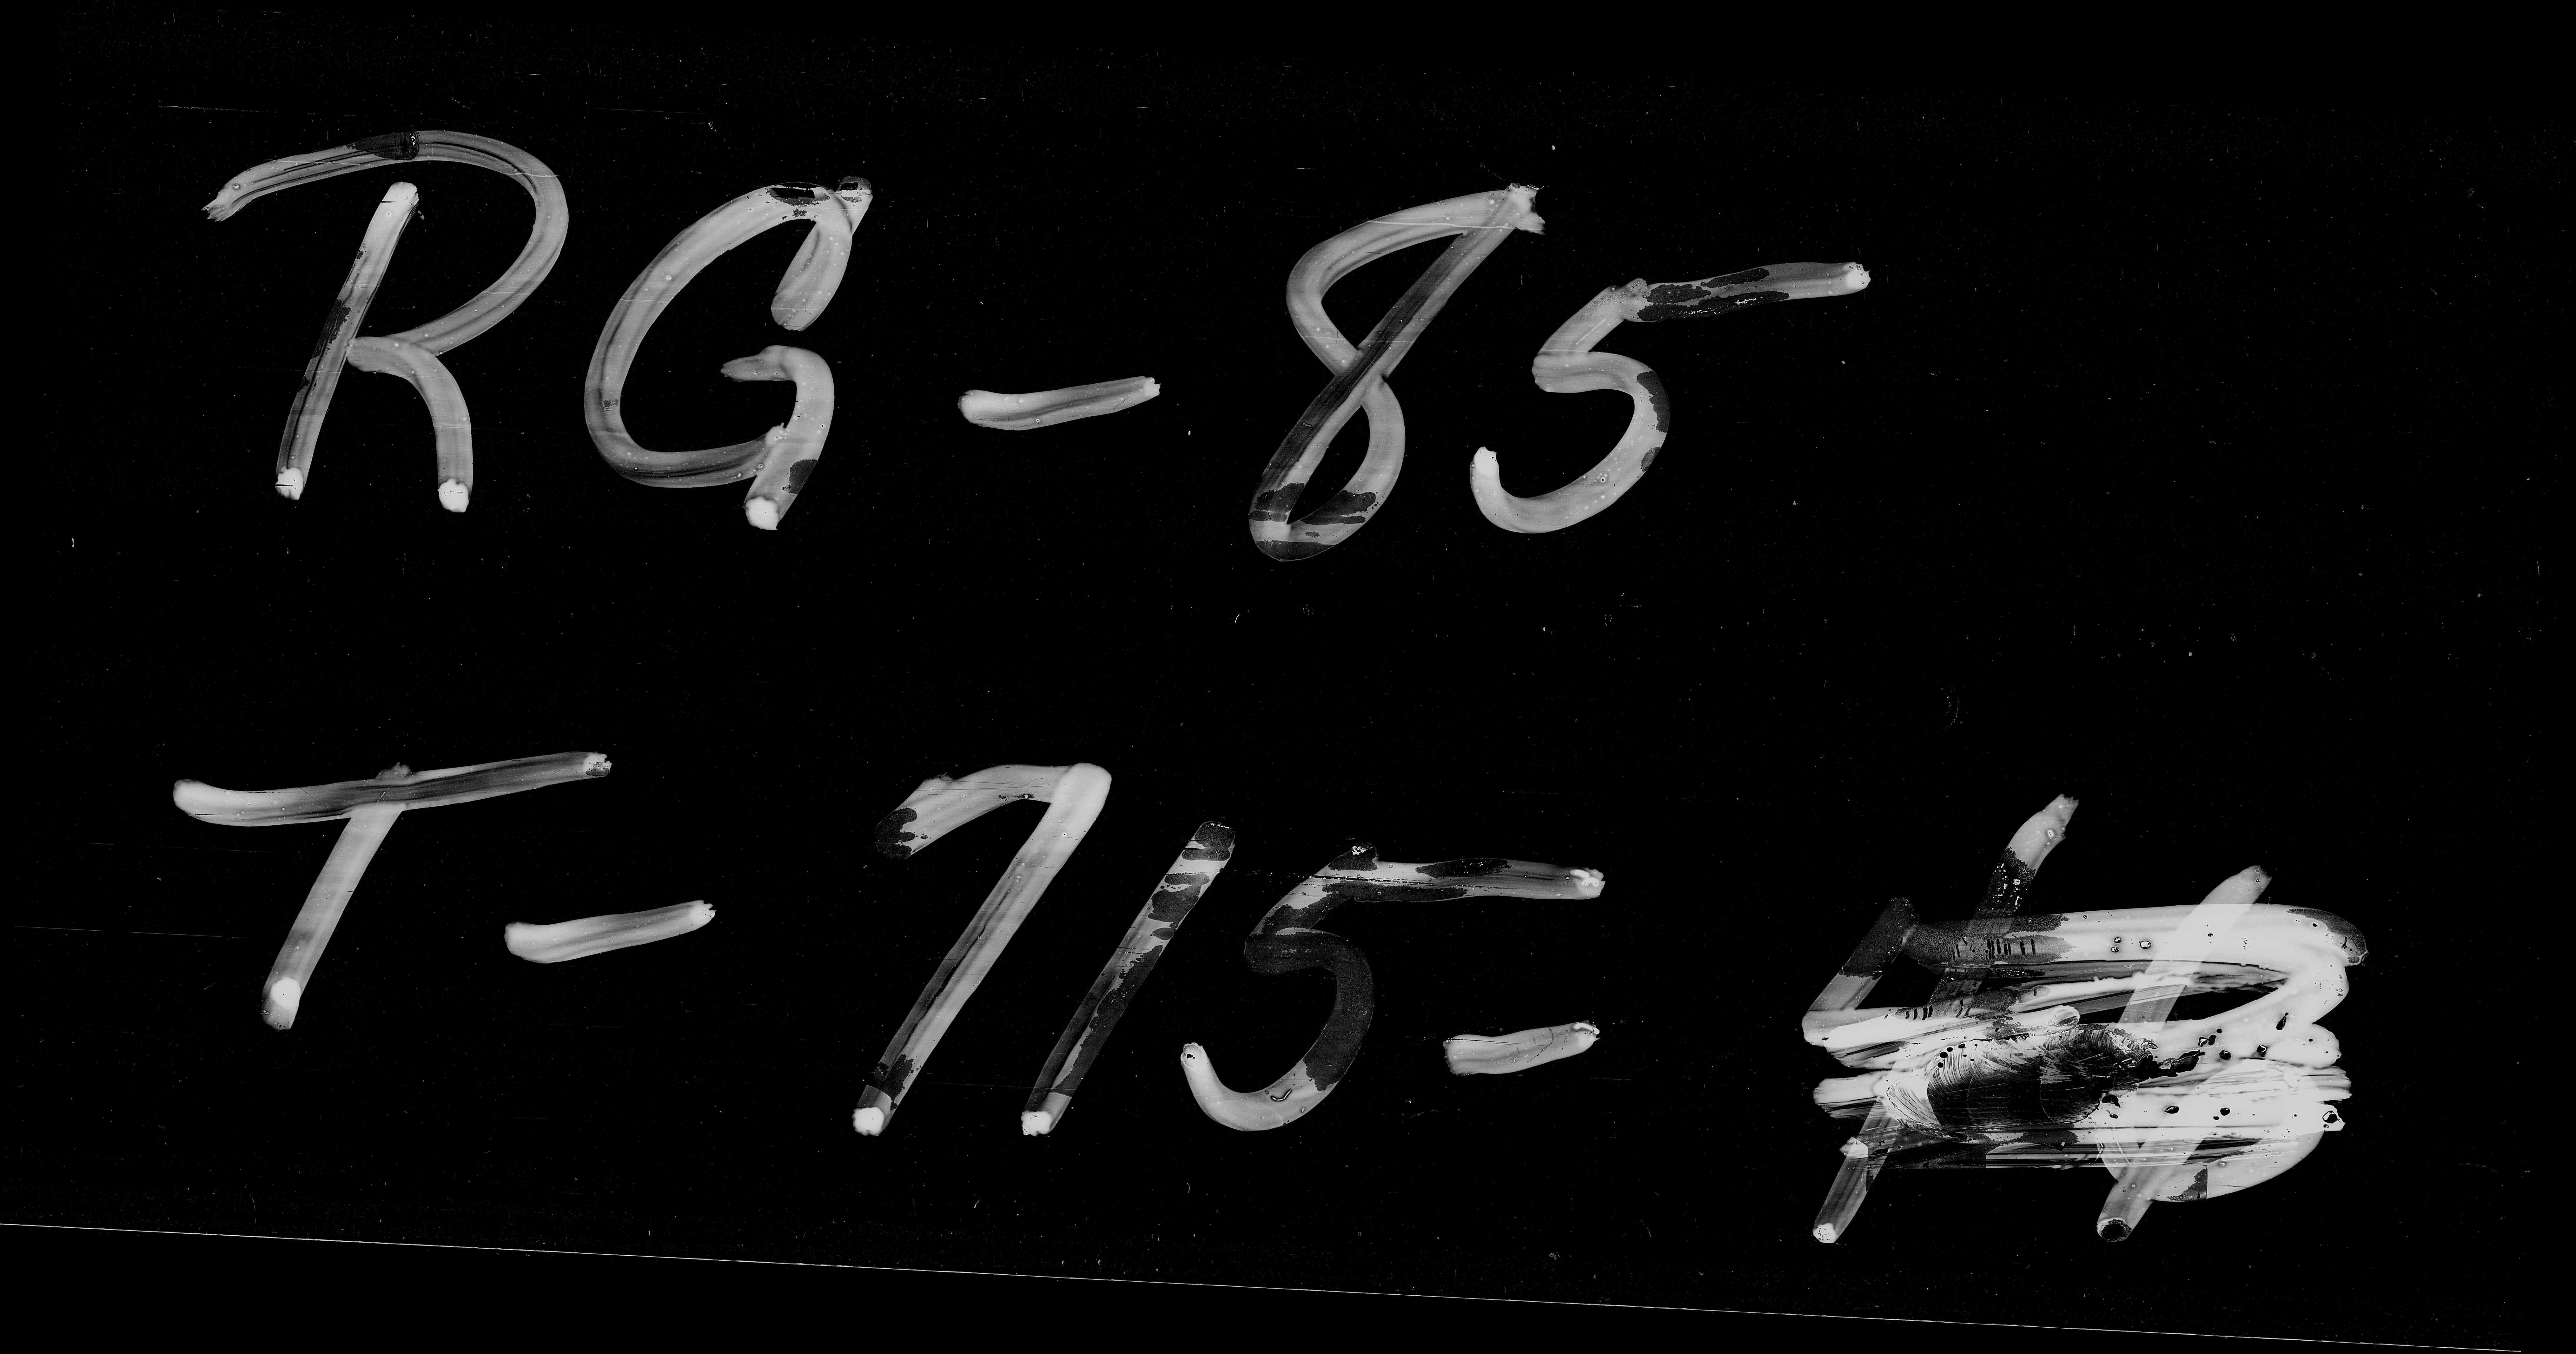 RG-85
T-715-